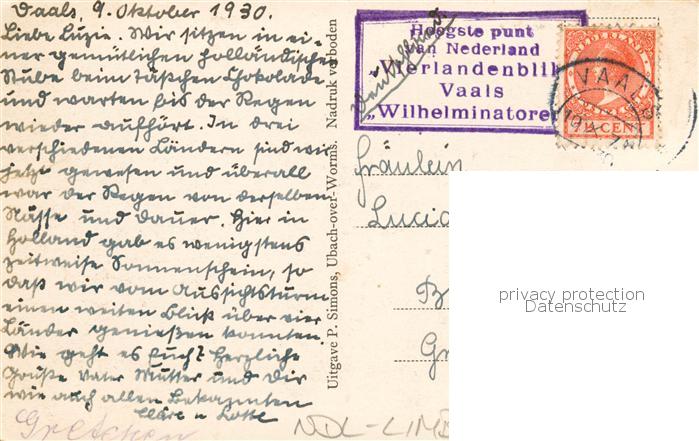 Vaals, 9. Oktober 1930.
Liebe Luzie. Wir sitzen in ei-
ner gemütlichen holländischen
Stube beim Täßchen Schokolade
und warten bis der Regen
wieder aufhört. In drei
verschiedenen Ländern sind wir
jetzt gewesen und überall
war der Regen von derselben
Nässe und Dauer. Hier in
Holland gab es wenigstens
zeitweise Sonnenschein, so
daß wir vom Aussichtsturm
einen weiten Blick über vier
Länder genießen konnten.
Wie geht es Euch? Herzliche
Grüße Vater Mutter und Dir
wie auch allen Bekannten
Cläre u Lotte
Gretchen
Uitgave P. Simons, Ubach-over-Worms. Nadruk verboden
Hoogste punt
van Nederland
"Vierlandenblik"
Vaals
„Wilhelminatoren"
Deutschland
NEDERLAND
VAALS
CENT
Fräulein
Lucia
privacy protection
Datenschutz
NDL-LIMB